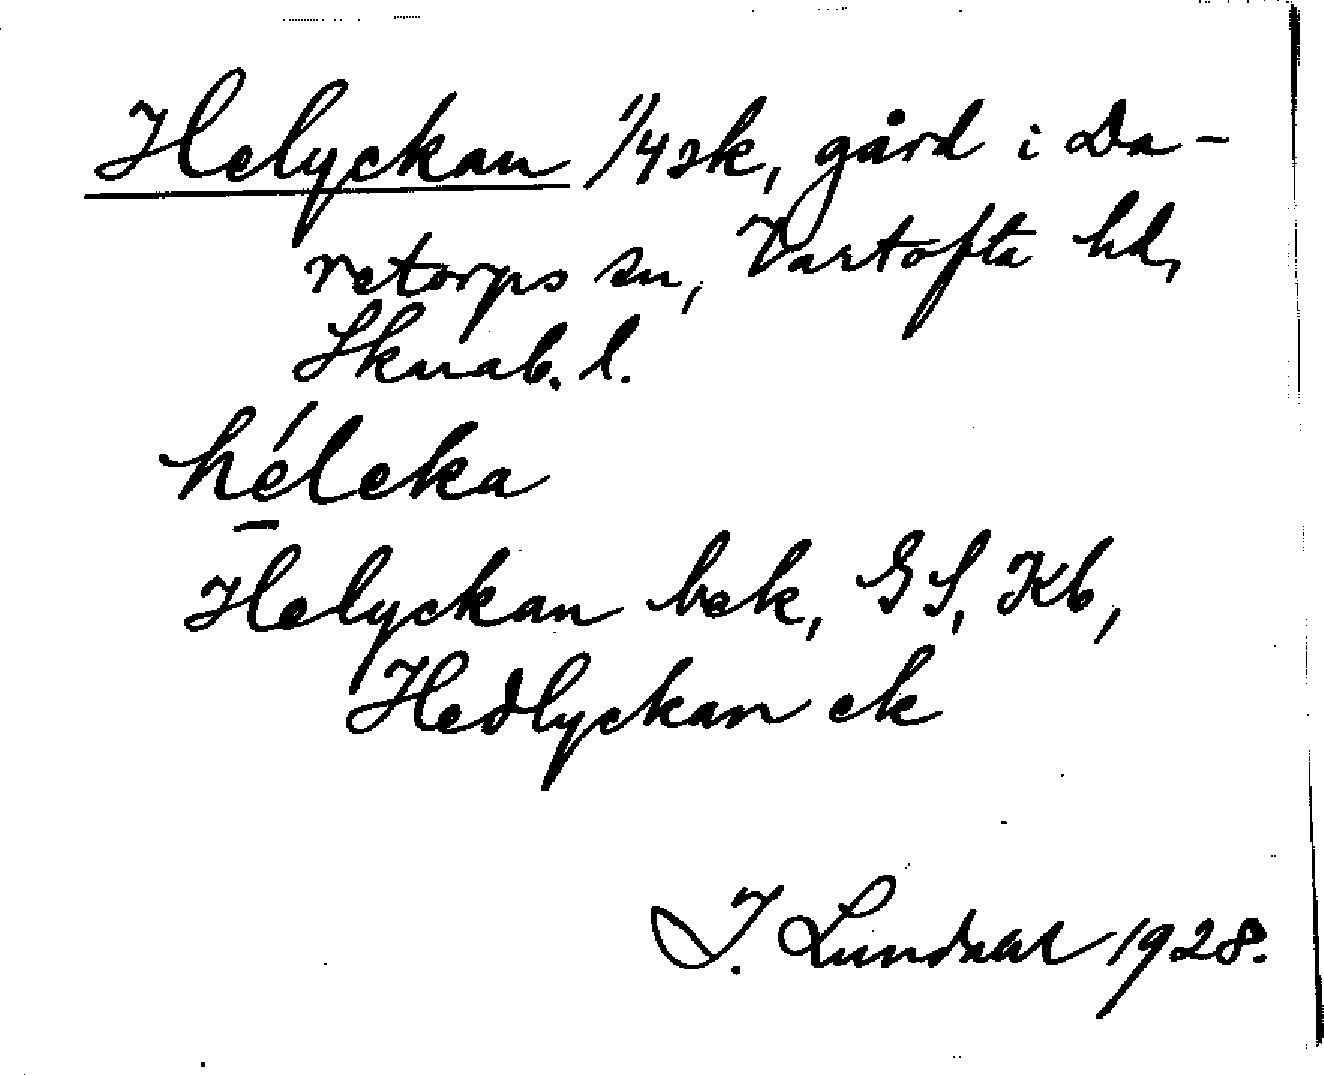 Helyckan 1/4 sk, gård i Da-
retorps sn, Vartofta hd,
Skarab. l.
héleka
Helyckan bek, GS, Kb,
Hedlyckan ek
J. Lundahl 1928.